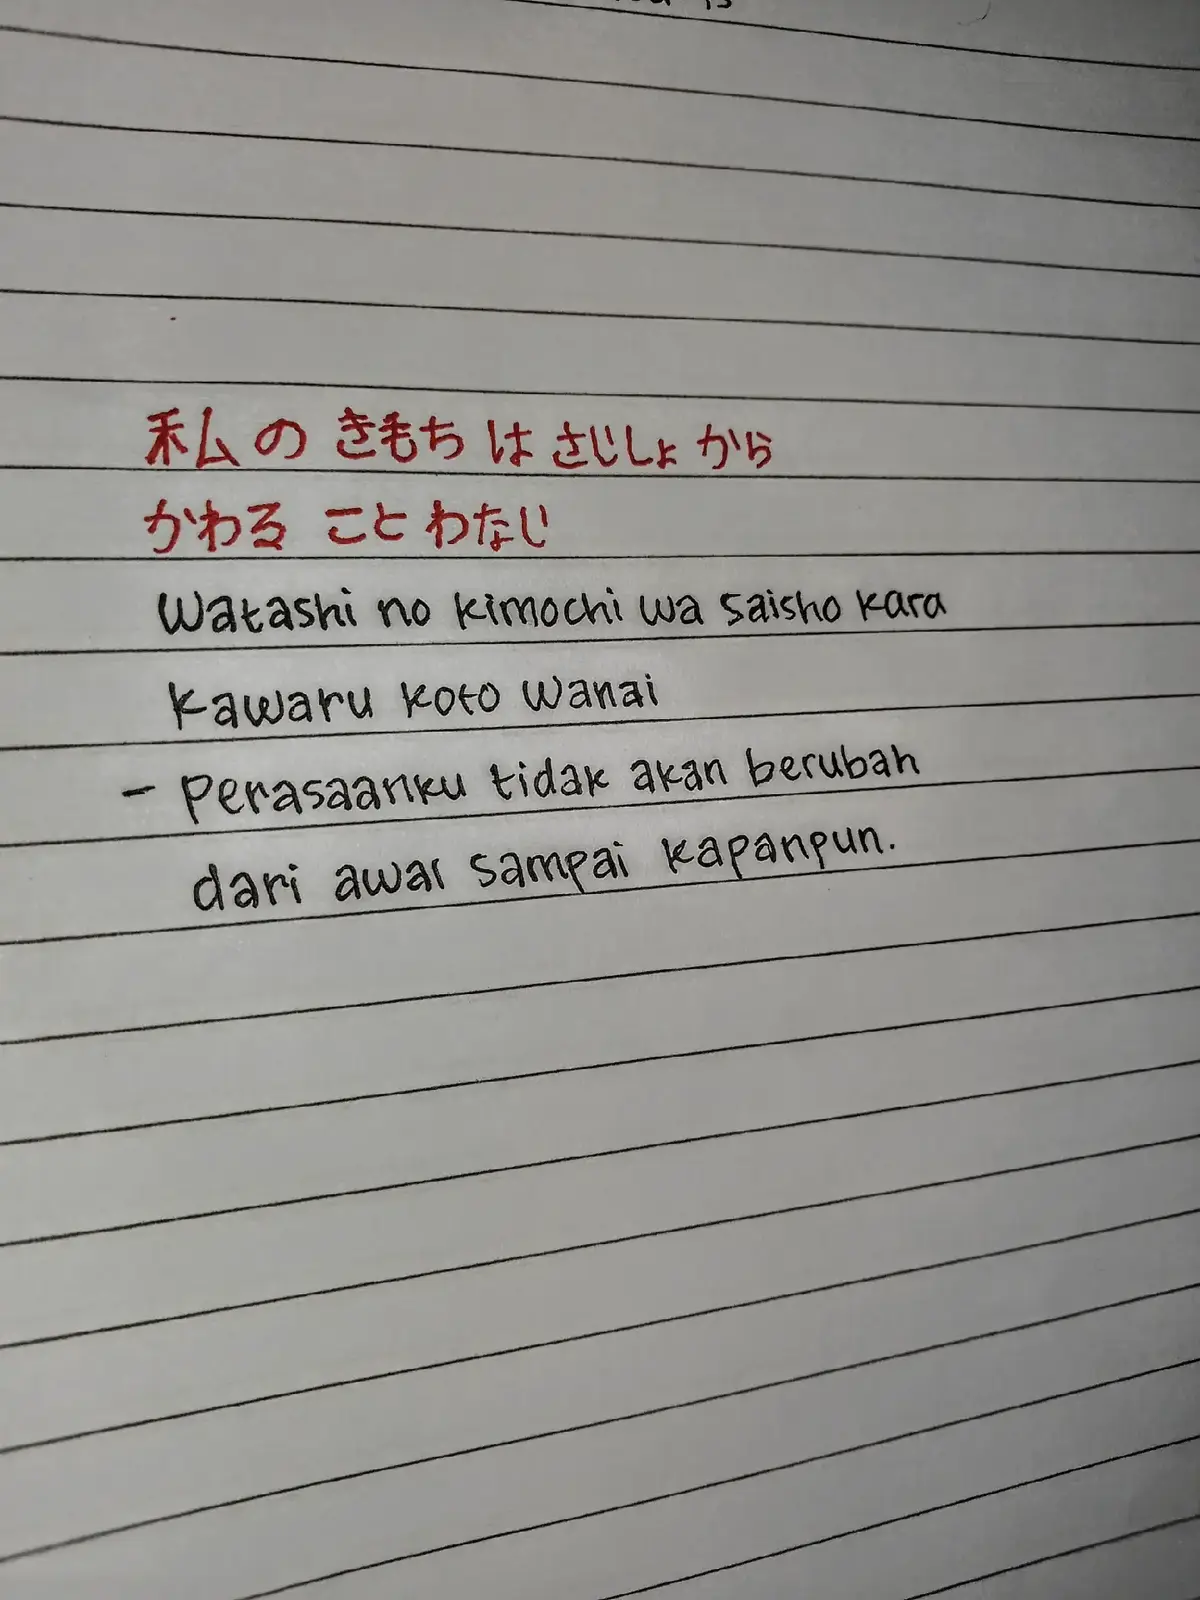 私の きもち は さいしょ から
かわる こと わない
Watashi no kimochi wa saisho kara
kawaru koto wanai
- Perasaanku tidak akan berubah
dari awal sampai kapanpun.